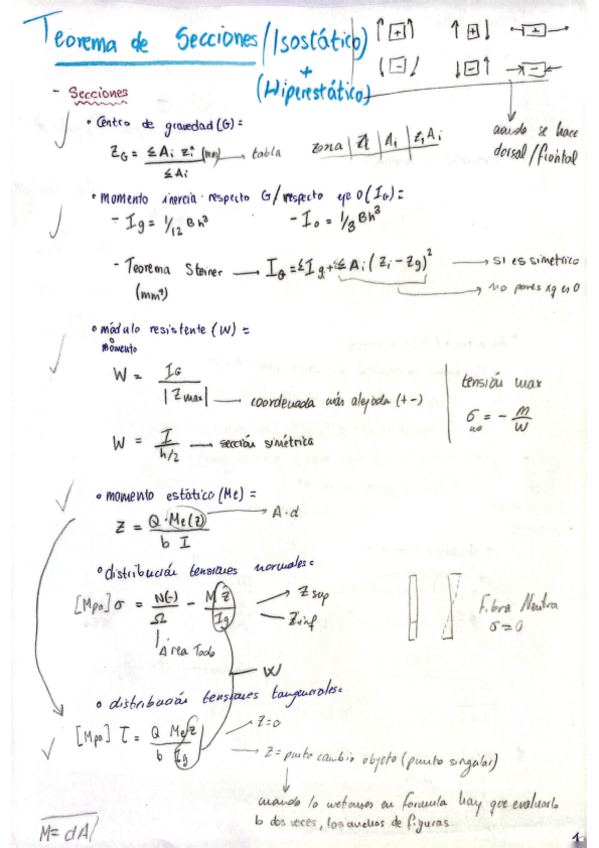 Teorema de Secciones/(Isostático)
+
(Hiperestático)
- Secciones
• Centro de gravedad (G) =
Z_G = ≤Ai zi (mm) → tabla
≤Ai
zona | Zi | Ai | Zi Ai
cuando se hace
dorsal/frontal
• momento inercia respecto G/respecto eje O (I_G) =
- Ig = 1/12 Bh³
- Io = 1/3 Bh³
- Teorema Steiner → I_G = ≤Ig + ≤Ai (Zi - Zg)²
(mm⁴)
→ SI es simetrico
→ No pones xq es 0
• módulo resistente (W) =
o
momento
W = I_G
|Zmax| — coordenada más alejada (+ -)
W = I
h/2 — sección simétrica
tensión max
σ = - M
W
• momento estático (Me) =
→ A·d
Z = Q·Me(z)
b I
• distribución tensiones normales =
[Mpa] σ = N(-) - M Z
Ω Ig
→ Z sup
→ Z inf
Área Todo
W
Fibra Neutra
σ = 0
• distribución tensiones tangenciales =
[Mpa] τ = Q Me/Z
b Ig
→ Z = 0
→ Z = punto cambio objeto (punto singular)
cuando lo metemos en formula hay que evaluarlo
b dos veces, los anchos de figuras.
M = dA/
1